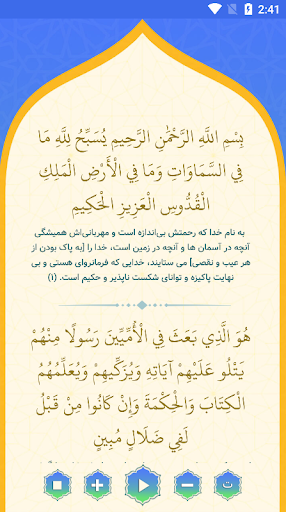 2:41
بِسْمِ اللَّهِ الرَّحْمَٰنِ الرَّحِيمِ يُسَبِّحُ لِلَّهِ مَا
فِي السَّمَاوَاتِ وَمَا فِي الْأَرْضِ الْمَلِكِ
الْقُدُّوسِ الْعَزِيزِ الْحَكِيمِ
به نام خدا که رحمتش بی‌اندازه است و مهربانی‌اش همیشگی
آنچه در آسمان ها و آنچه در زمین است، خدا را [به پاک بودن از
هر عیب و نقصی] می ستایند، خدایی که فرمانروای هستی و بی
نهایت پاکیزه و توانای شکست ناپذیر و حکیم است. (۱)
هُوَ الَّذِي بَعَثَ فِي الْأُمِّيِّينَ رَسُولًا مِنْهُمْ
يَتْلُو عَلَيْهِمْ آيَاتِهِ وَيُزَكِّيهِمْ وَيُعَلِّمُهُمُ
الْكِتَابَ وَالْحِكْمَةَ وَإِنْ كَانُوا مِنْ قَبْلُ
لَفِي ضَلَالٍ مُبِينٍ
ت